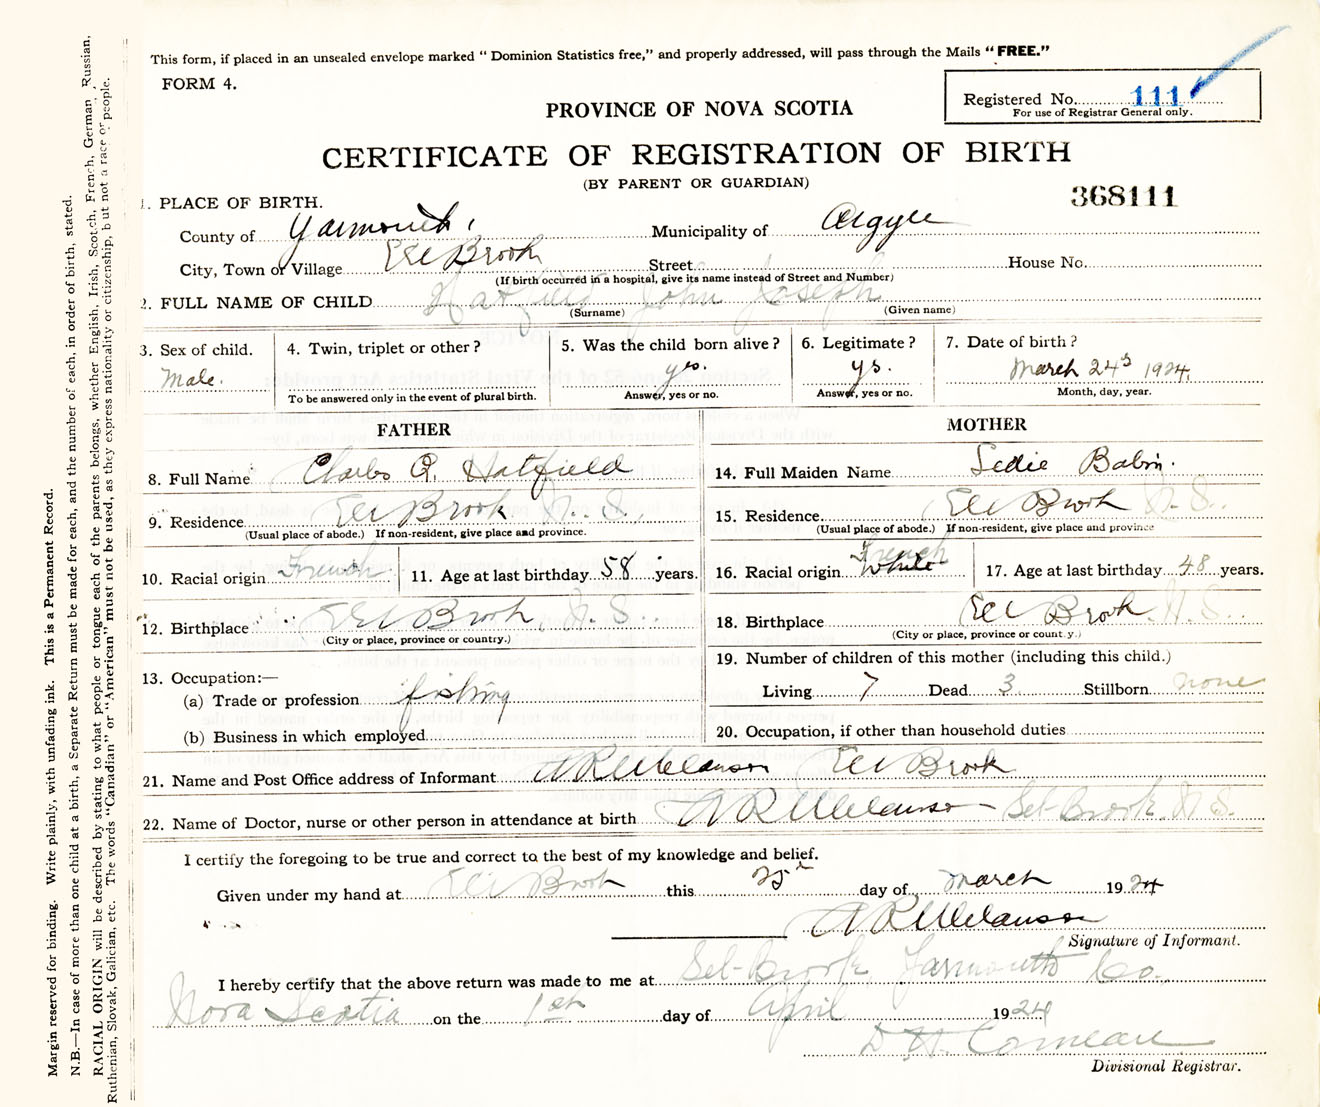 This form, if placed in an unsealed envelope marked “ Dominion Statistics free,” and properly addressed, will pass through the Mails “ FREE.”
FORM 4.
Registered No. 111
For use of Registrar General only.
PROVINCE OF NOVA SCOTIA
CERTIFICATE OF REGISTRATION OF BIRTH
(BY PARENT OR GUARDIAN)
368111
1. PLACE OF BIRTH.
County of Yarmouth, Municipality of Argyle
City, Town or Village Eel Brook Street House No.
(If birth occurred in a hospital, give its name instead of Street and Number)
2. FULL NAME OF CHILD Hatfield John Joseph
(Surname) (Given name)
3. Sex of child. 4. Twin, triplet or other? 5. Was the child born alive? 6. Legitimate? 7. Date of birth?
Male. yes. ys. March 24th 1924.
To be answered only in the event of plural birth. Answer, yes or no. Answer, yes or no. Month, day, year.
FATHER
8. Full Name Charles A. Hatfield
9. Residence Eel Brook N. S.
(Usual place of abode.) If non-resident, give place and province.
10. Racial origin French 11. Age at last birthday 58 years.
12. Birthplace Eel Brook, N. S.
(City or place, province or country.)
13. Occupation:—
(a) Trade or profession fishing
(b) Business in which employed
MOTHER
14. Full Maiden Name Sedie Babin.
15. Residence Eel Brook N. S.
(Usual place of abode.) If non-resident, give place and province
16. Racial origin French White 17. Age at last birthday 48 years.
18. Birthplace Eel Brook. N. S.
(City or place, province or country.)
19. Number of children of this mother (including this child.)
Living 7 Dead 3 Stillborn none
20. Occupation, if other than household duties
21. Name and Post Office address of Informant A R Melanson Eel Brook
22. Name of Doctor, nurse or other person in attendance at birth A R Melanson - Eel-Brook. N. S.
I certify the foregoing to be true and correct to the best of my knowledge and belief.
Given under my hand at Eel Brook this 25 day of March 1924
A R Melanson
Signature of Informant.
I hereby certify that the above return was made to me at Eel-Brook, Yarmouth Co.,
Nova Scotia on the 1st day of April 1924
D. H. Comeau
Divisional Registrar.
Margin reserved for binding. Write plainly, with unfading ink. This is a Permanent Record.
N.B.—In case of more than one child at a birth, a Separate Return must be made for each, and the number of each, in order of birth, stated.
RACIAL ORIGIN will be described by stating to what people or tongue each of the parents belongs, whether English, Irish, Scotch, French, German, Russian,
Ruthenian, Slovak, Galician, etc. The words “Canadian” or “American” must not be used, as they express nationality or citizenship, but not a race or people.